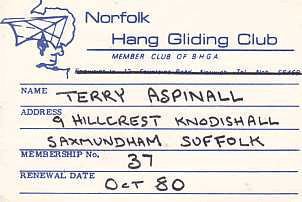 Norfolk
Hang Gliding Club
MEMBER CLUB OF B·H·G·A·
NAME TERRY ASPINALL
ADDRESS
9 HILLCREST KNODISHALL
SAXMUNDHAM SUFFOLK
MEMBERSHIP No. 37
RENEWAL DATE OCT 80